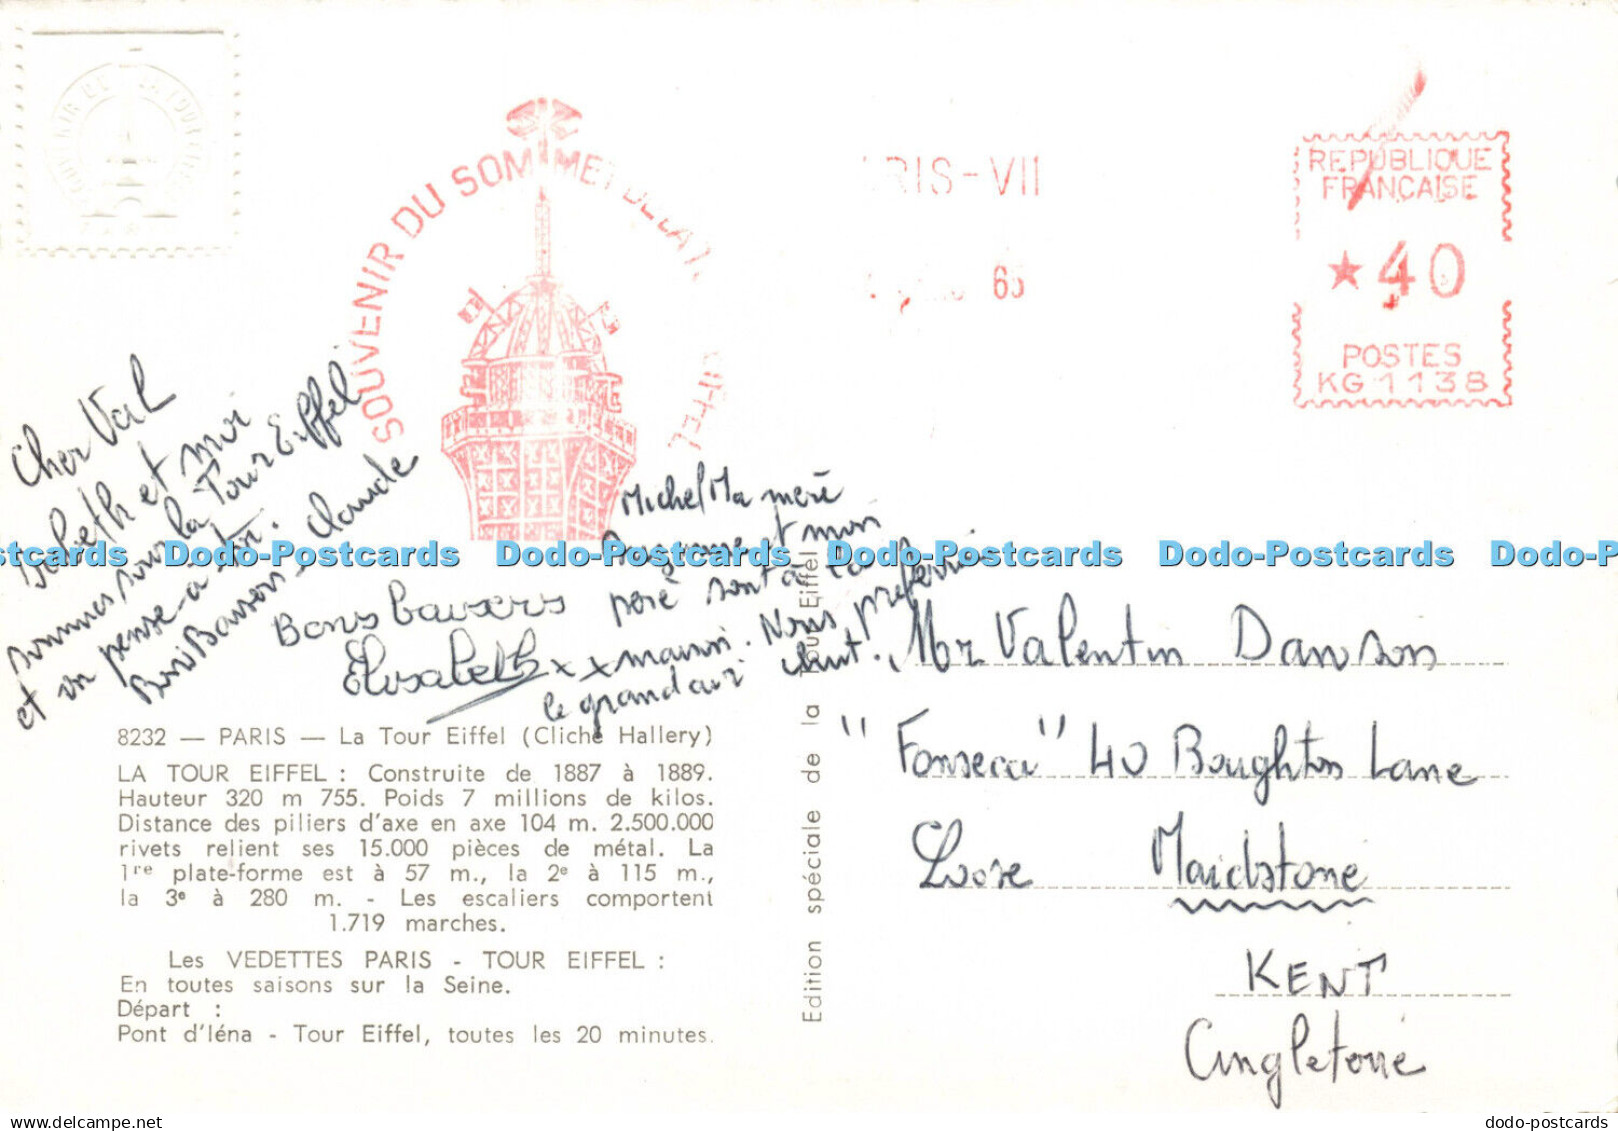 SOUVENIR DU SOMMET DE LA T
EIFFEL
RIS-VII
65
REPUBLIQUE
FRANÇAISE
★40
POSTES
KG 1138
Cher Val
Babeth et moi
sommes sous la Tour Eiffel
et on pense à toi.
Bons Baisers - Claude
Bons baisers
Elisabeth x x
Michel Ma mère
Suzanne et mon
père sont à la
maison. Nous preferri
le grand air
8232 — PARIS — La Tour Eiffel (Cliché Hallery)
LA TOUR EIFFEL : Construite de 1887 à 1889.
Hauteur 320 m 755. Poids 7 millions de kilos.
Distance des piliers d'axe en axe 104 m. 2.500.000
rivets relient ses 15.000 pièces de métal. La
1re plate-forme est à 57 m., la 2e à 115 m.,
la 3e à 280 m. - Les escaliers comportent
1.719 marches.
Les VEDETTES PARIS - TOUR EIFFEL :
En toutes saisons sur la Seine.
Départ :
Pont d'Iéna - Tour Eiffel, toutes les 20 minutes.
Edition spéciale de la Tour Eiffel
Mr Valentin Dawson
"Fonseca" 40 Boughton Lane
Loose Maidstone
KENT
Angleterre
Dodo-Postcards Dodo-Postcards Dodo-Postcards Dodo-Postcards Dodo-Postcards
dodo-postcards
dodo-postcards